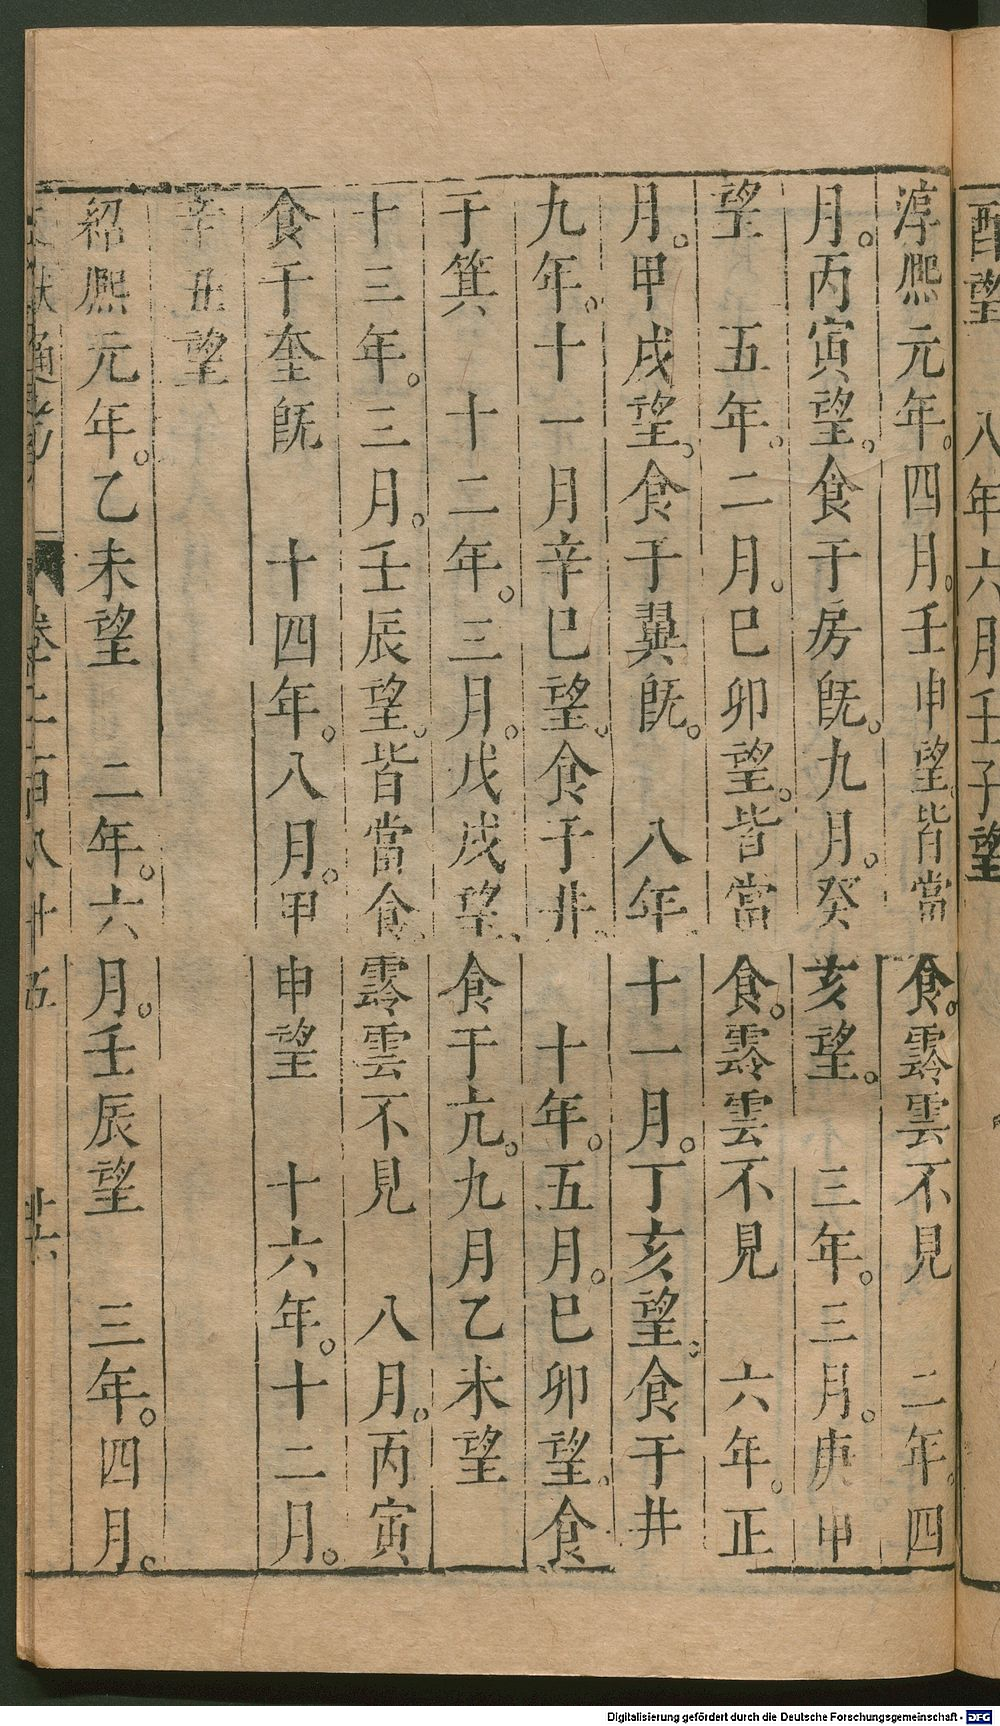 酉望 八年六月壬子望
淳熙元年。四月。壬申望。皆當食。霒雲不見 二年。四
月。丙寅望。食于房旣。九月。癸亥望。 三年。三月。庚申
望 五年。二月。己卯望。皆當食。霒雲不見 六年。正
月。甲戌望。食于翼旣。 八年十一月。丁亥望。食于井
九年。十一月辛巳望。食于井。 十年。五月。己卯望。食
于箕 十二年。三月。戊戌望、食于亢。九月乙未望
十三年。三月。壬辰望。皆當食。霒雲不見 八月。丙寅
食于奎旣 十四年。八月。甲申望 十六年。十二月。
辛丑望
紹熙元年。乙未望 二年。六月。壬辰望 三年。四月。
文獻通考 卷二百八十五 廿六
Digitalisierung gefördert durch die Deutsche Forschungsgemeinschaft - DFG